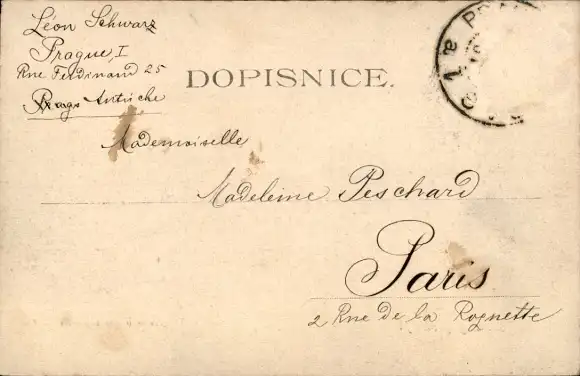 Léon Schwarz
Prague, I
Rue Ferdinand 25
Autriche
DOPISNICE.
Mademoiselle
Madeleine Peschard
Paris
2 Rue de la Roquette